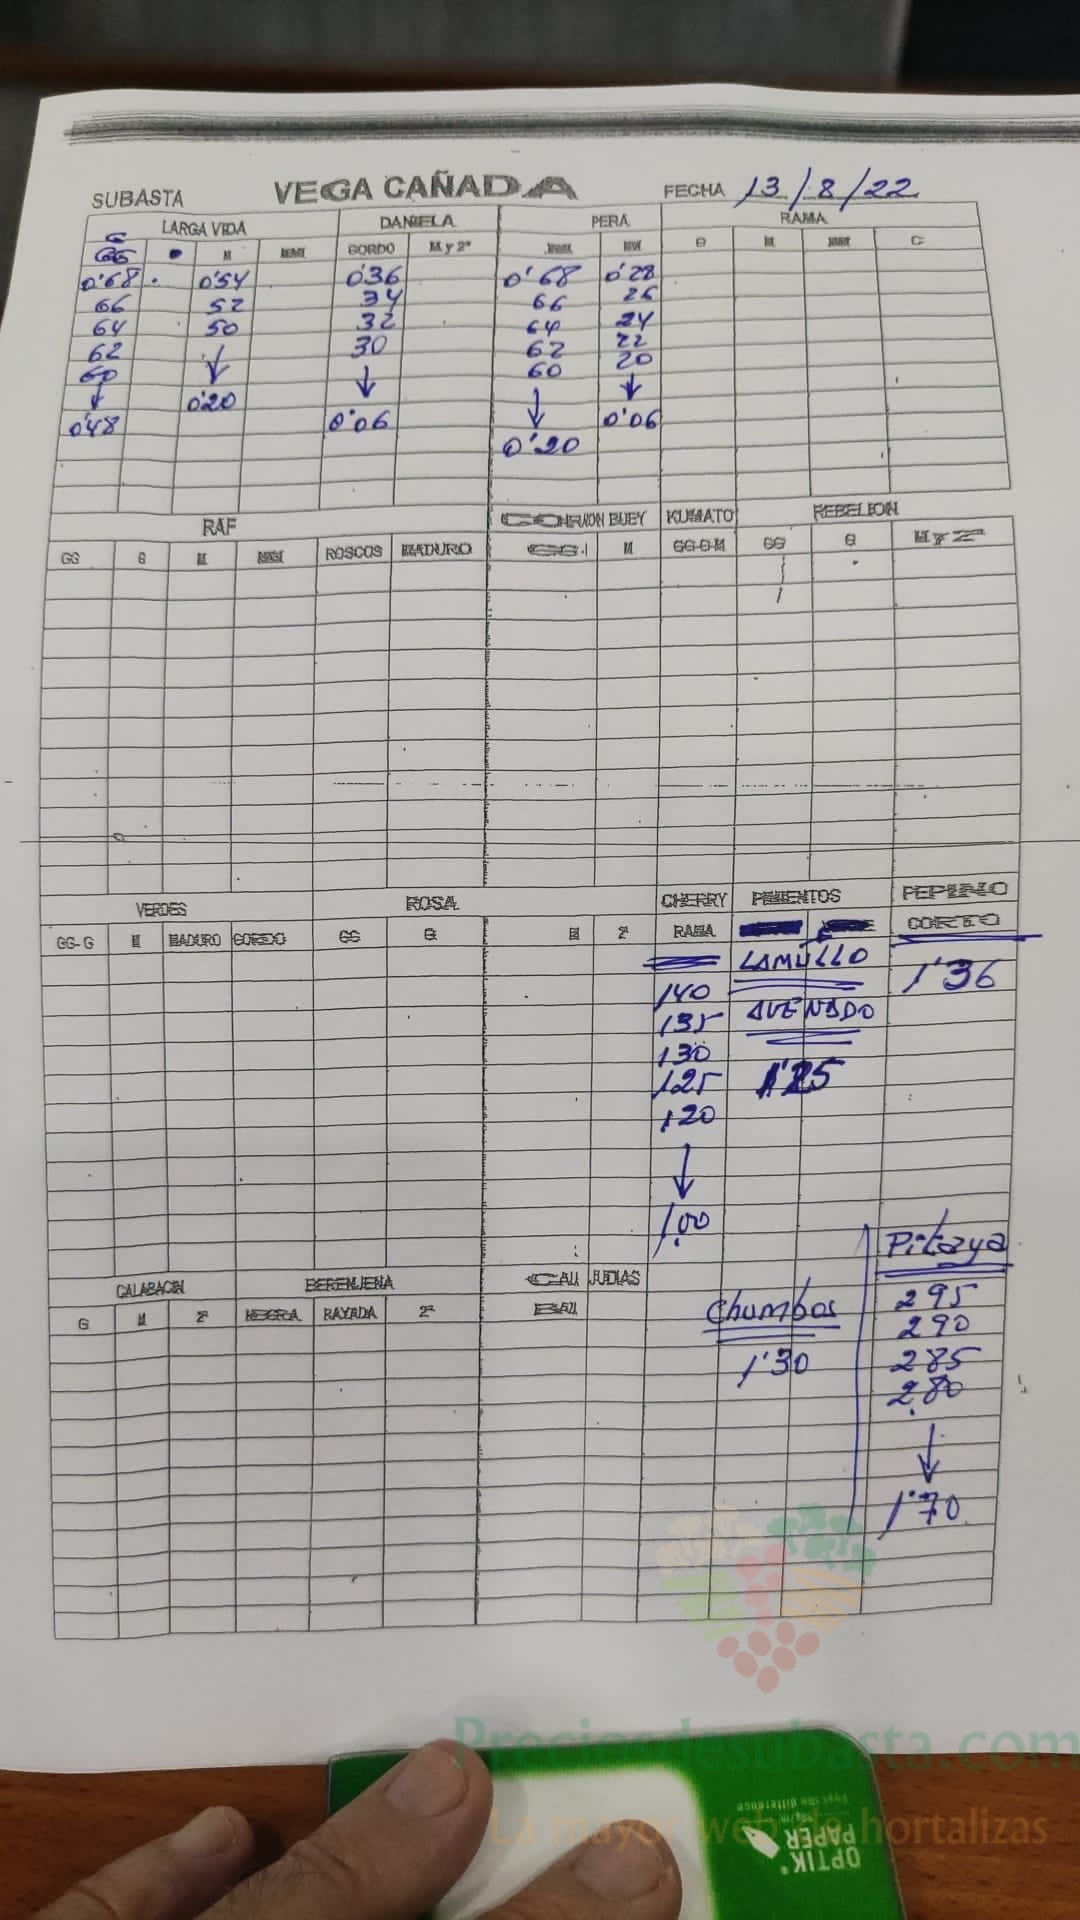 SUBASTA VEGA CAÑADA FECHA 13/8/22
LARGA VIDA DANIELA PERA RAMA
G
GG M GORDO M y 2ª G M C
0'68 0'54 0'36 0'68 0'28
66 52 34 66 26
64 50 32 64 24
62 30 62 22
60 60 20
↓ ↓ ↓ ↓ ↓
0'48 0'20 0'06 0'20 0'06
RAF CORAZON BUEY KUMATO REBELION
GG G M ROSCOS MADURO GG M GG-G-M GG G M y 2ª
VERDES ROSA CHERRY PIMIENTOS PEPINO
GG-G M MADURO GORDO GG G M 2ª RAMA CORTO
LAMULLO 1'36
140 AVENADO
135
130 1'25
125
120
↓
1,00
Pitaya
295
290
285
280
↓
1'70
CALABACIN BERENJENA CALI JUDIAS
G M 2ª NEGRA RAYADA 2ª
Chumbos
1'30
Preciosdesubasta.com
La mayor web de hortalizas
OPTIK
PAPER